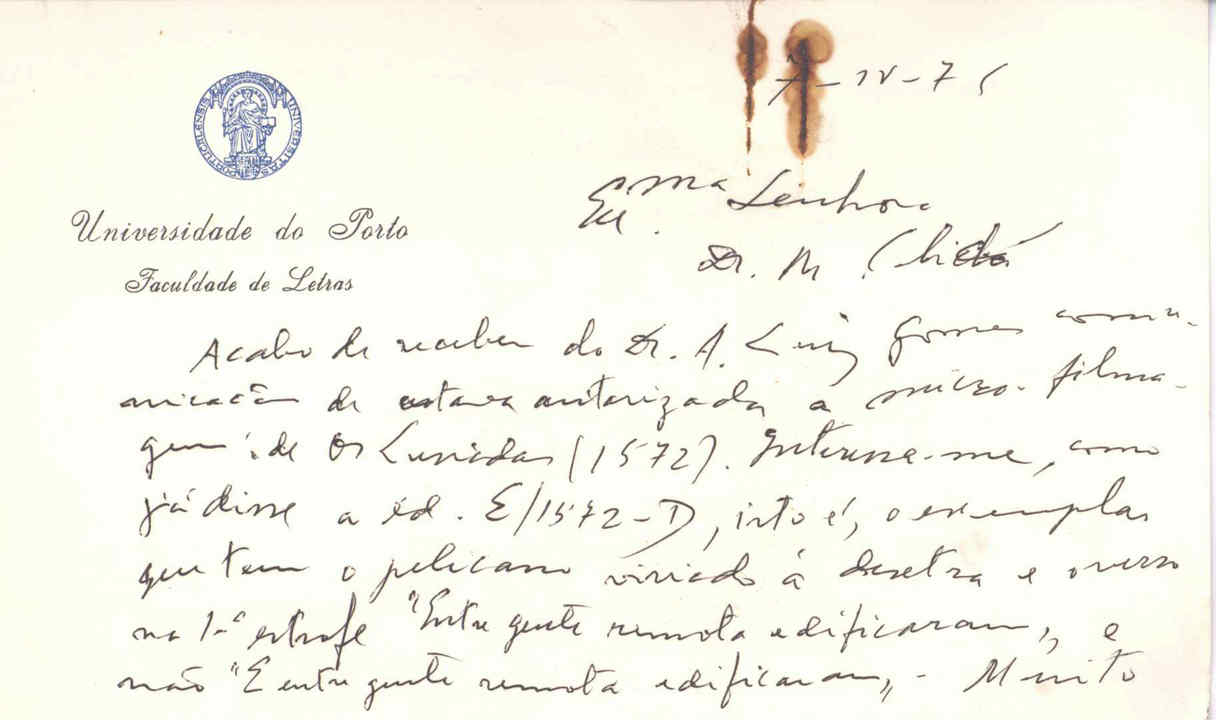 UNIVERSITAS PORTUCALENSIS
7-IV-76
Universidade do Porto
Faculdade de Letras
Ex.ma Senhora
Dr. M.
Acabo de receber do Dr. A. Luiz Gomes comu-
nicação de estar autorizada a micro-filma-
gem de Os Lusiadas (1572). Interessa-me, como
já disse a ed. E/1572-D, isto é, o exemplar
que tem o pelicano virado à dextra e o verso
na 1.ª estrofe "Entre gente remota edificaram", e
não "E entre gente remota edificaram". - Muito